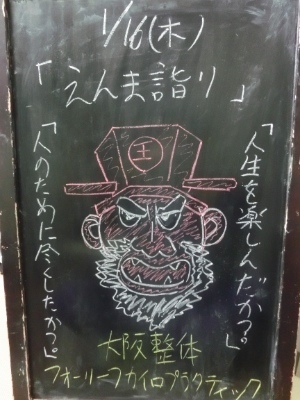 1/16(木)
「えんま詣り」
王
「人生を楽しんだか?。」
「人のために尽くしたか?。」
大阪整体
フォーリーフカイロプラクティック